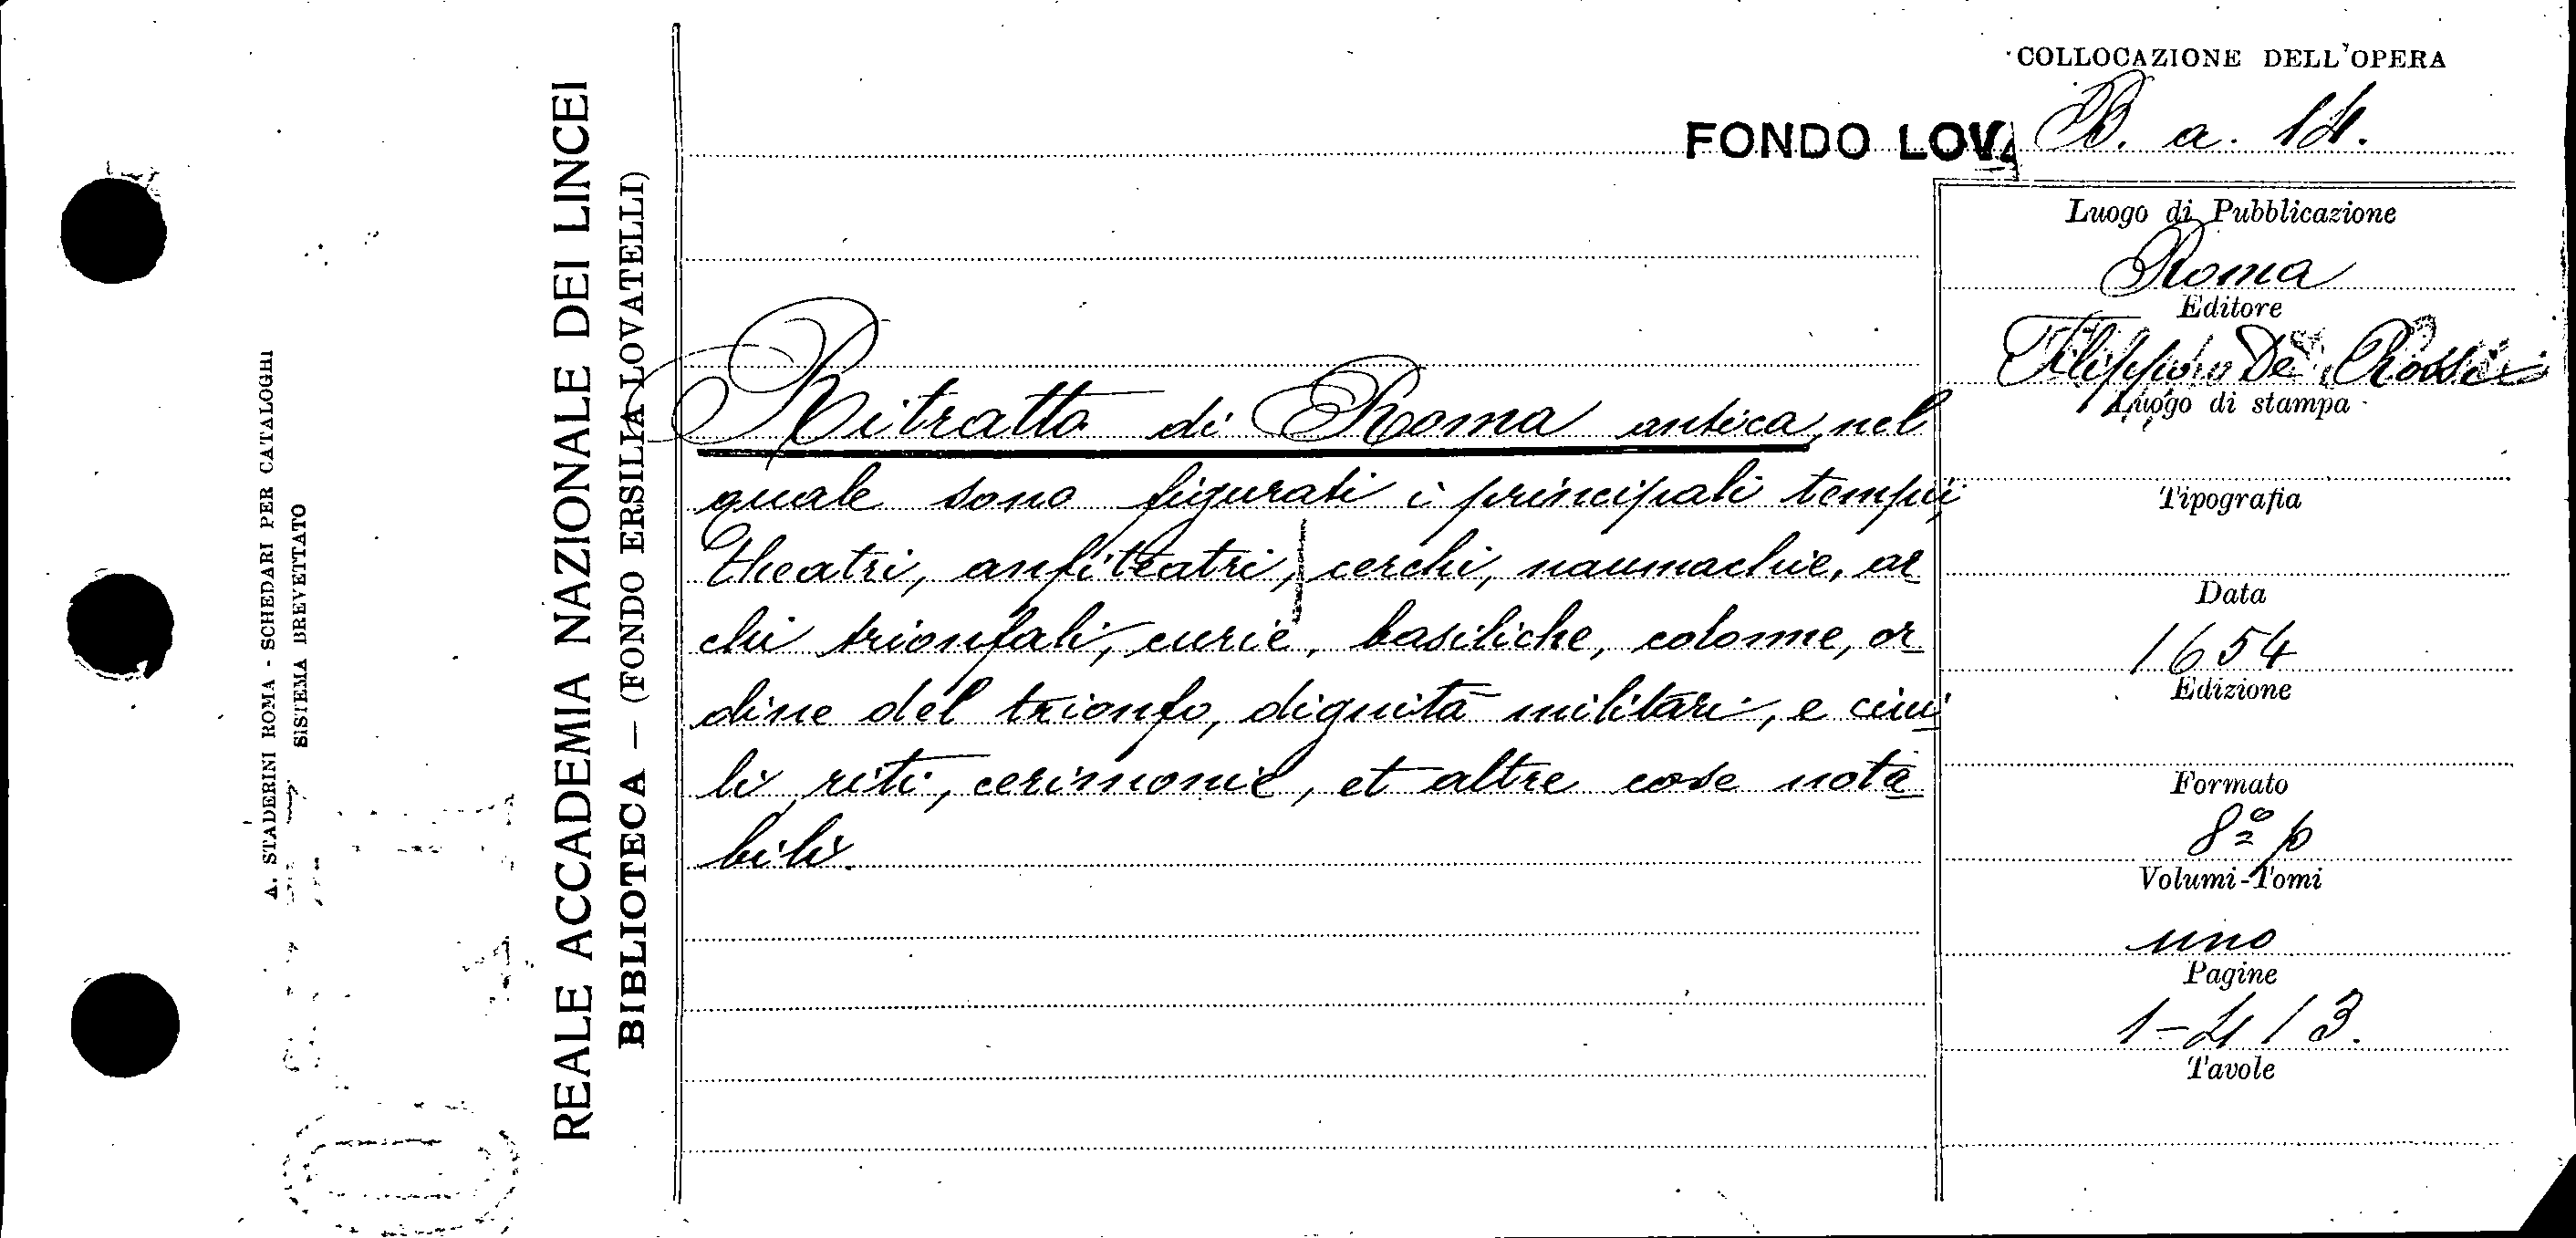 A. STADERINI ROMA - SCHEDARI PER CATALOGHI
SISTEMA BREVETTATO
REALE ACCADEMIA NAZIONALE DEI LINCEI
BIBLIOTECA — (FONDO ERSILIA LOVATELLI)
COLLOCAZIONE DELL'OPERA
FONDO LOVA
B. a. 14.
Ritratto di Roma antica, nel
quale sono figurati i principali tempij
theatri, anfiteatri, cerchi, naumachie, ar
chi trionfali, curie, basiliche, colonne, or
dine del trionfo, dignità militari, e civi
li, riti, cerimonie, et altre cose nota
bili.
Luogo di Pubblicazione
Roma
Editore
Filippo De Rossi
Luogo di stampa
Tipografia
Data
1654
Edizione
Formato
8º p
Volumi-Tomi
uno
Pagine
1-413.
Tavole